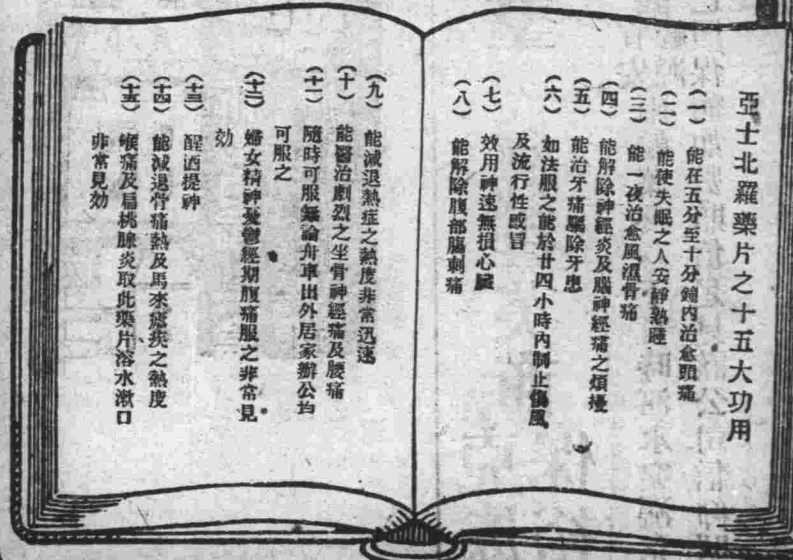 亞士北羅藥片之十五大功用
(一) 能在五分至十分鐘內治愈頭痛
(二) 能使失眠之人安靜熟睡
(三) 能一夜治愈風濕骨痛
(四) 能解除神經炎及腦神經痛之煩擾
(五) 能治牙痛驅除牙患
(六) 如法服之能於廿四小時內制止傷風
及流行性感冒
(七) 效用神速無損心臟
(八) 能解除腹部腸刺痛
(九) 能減退熱症之熱度非常迅速
(十) 能醫治劇烈之坐骨神經痛及腰痛
(十一) 隨時可服無論舟車出外居家辦公均
可服之
(十二) 婦女精神憂鬱經期腹痛服之非常見
効
(十三) 醒酒提神
(十四) 能減退骨痛熱及馬來瘧疾之熱度
(十五) 喉痛及扁桃腺炎取此藥片溶水漱口
非常見効